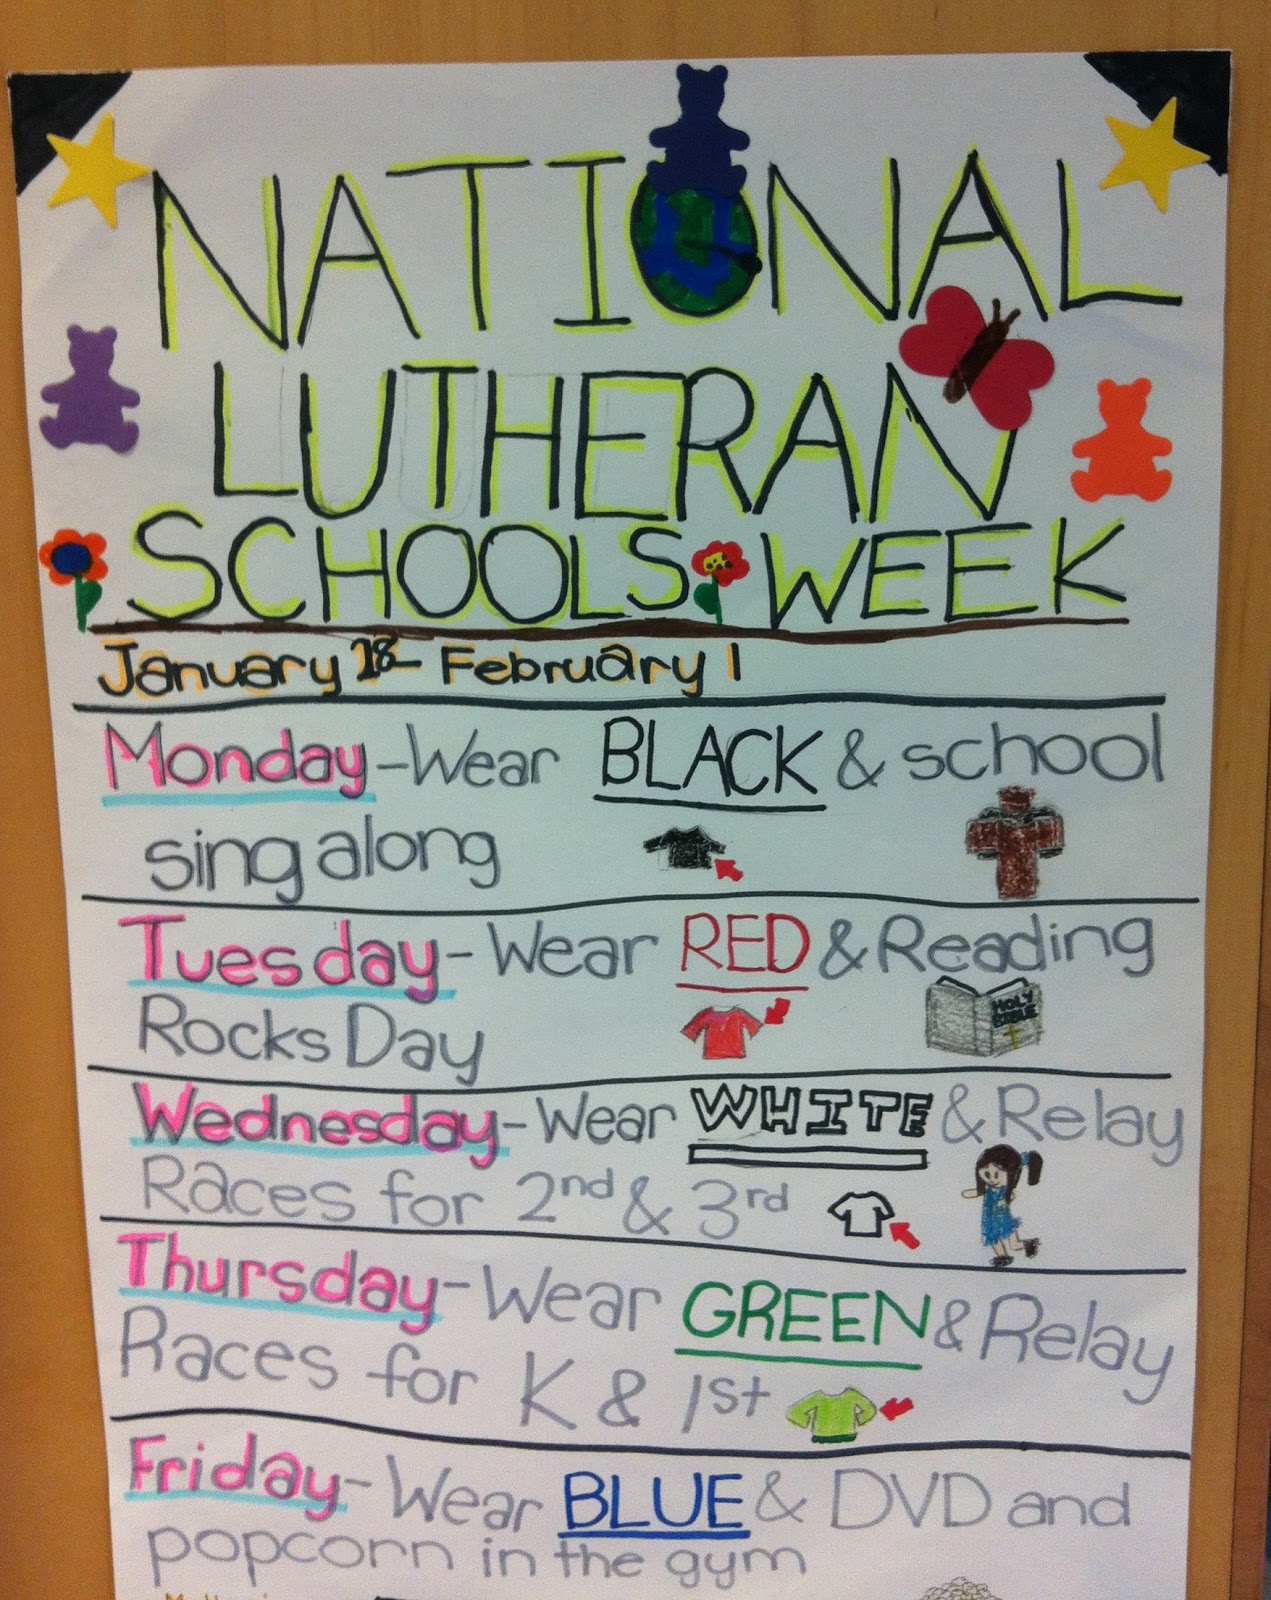 NATIONAL
LUTHERAN
SCHOOLS WEEK
January 28- February 1
Monday-Wear BLACK & school
sing along
Tuesday-Wear RED & Reading
Rocks Day
HOLY
BIBLE
Wednesday-Wear WHITE & Relay
Races for 2nd & 3rd
Thursday-Wear GREEN & Relay
Races for K & 1st
Friday-Wear BLUE & DVD and
popcorn in the gym